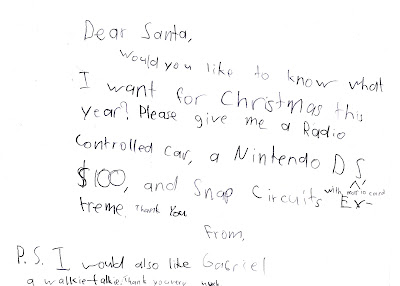 Dear Santa,
Would you like to know what
I want for Christmas this
year? Please give me a Radio
Controlled Car, a Nintendo DS,
with mario cart
$100, and Snap Circuits Ex-
treme. Thank You
From,
P.S. I would also like Gabriel
a walkie-talkie. Thank you very much